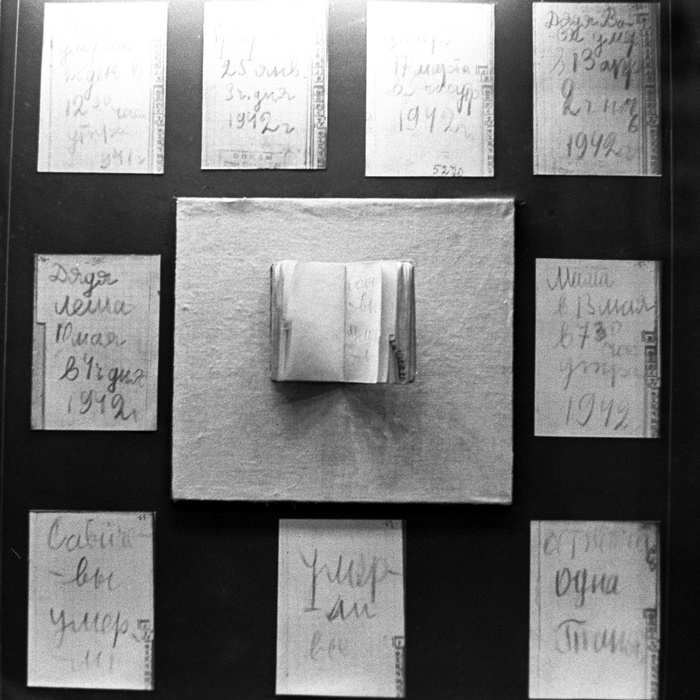 умерла
28 дек в
12 30 час
утра
1941 г
25 янв.
3 ч. дня
1942 г
умер
17 марта
в 5 час утр
1942 г
5270
Дядя Вася
умер
в 13 апр
2 ч ноч
1942 г
Дядя
Леша
10 мая
в 4 ч дня
1942 г
Мама
в 13 мая
в 7 30
час
утра
1942
Савиче
-вы
умер
ли
умер
-ли
все
одна
Таня